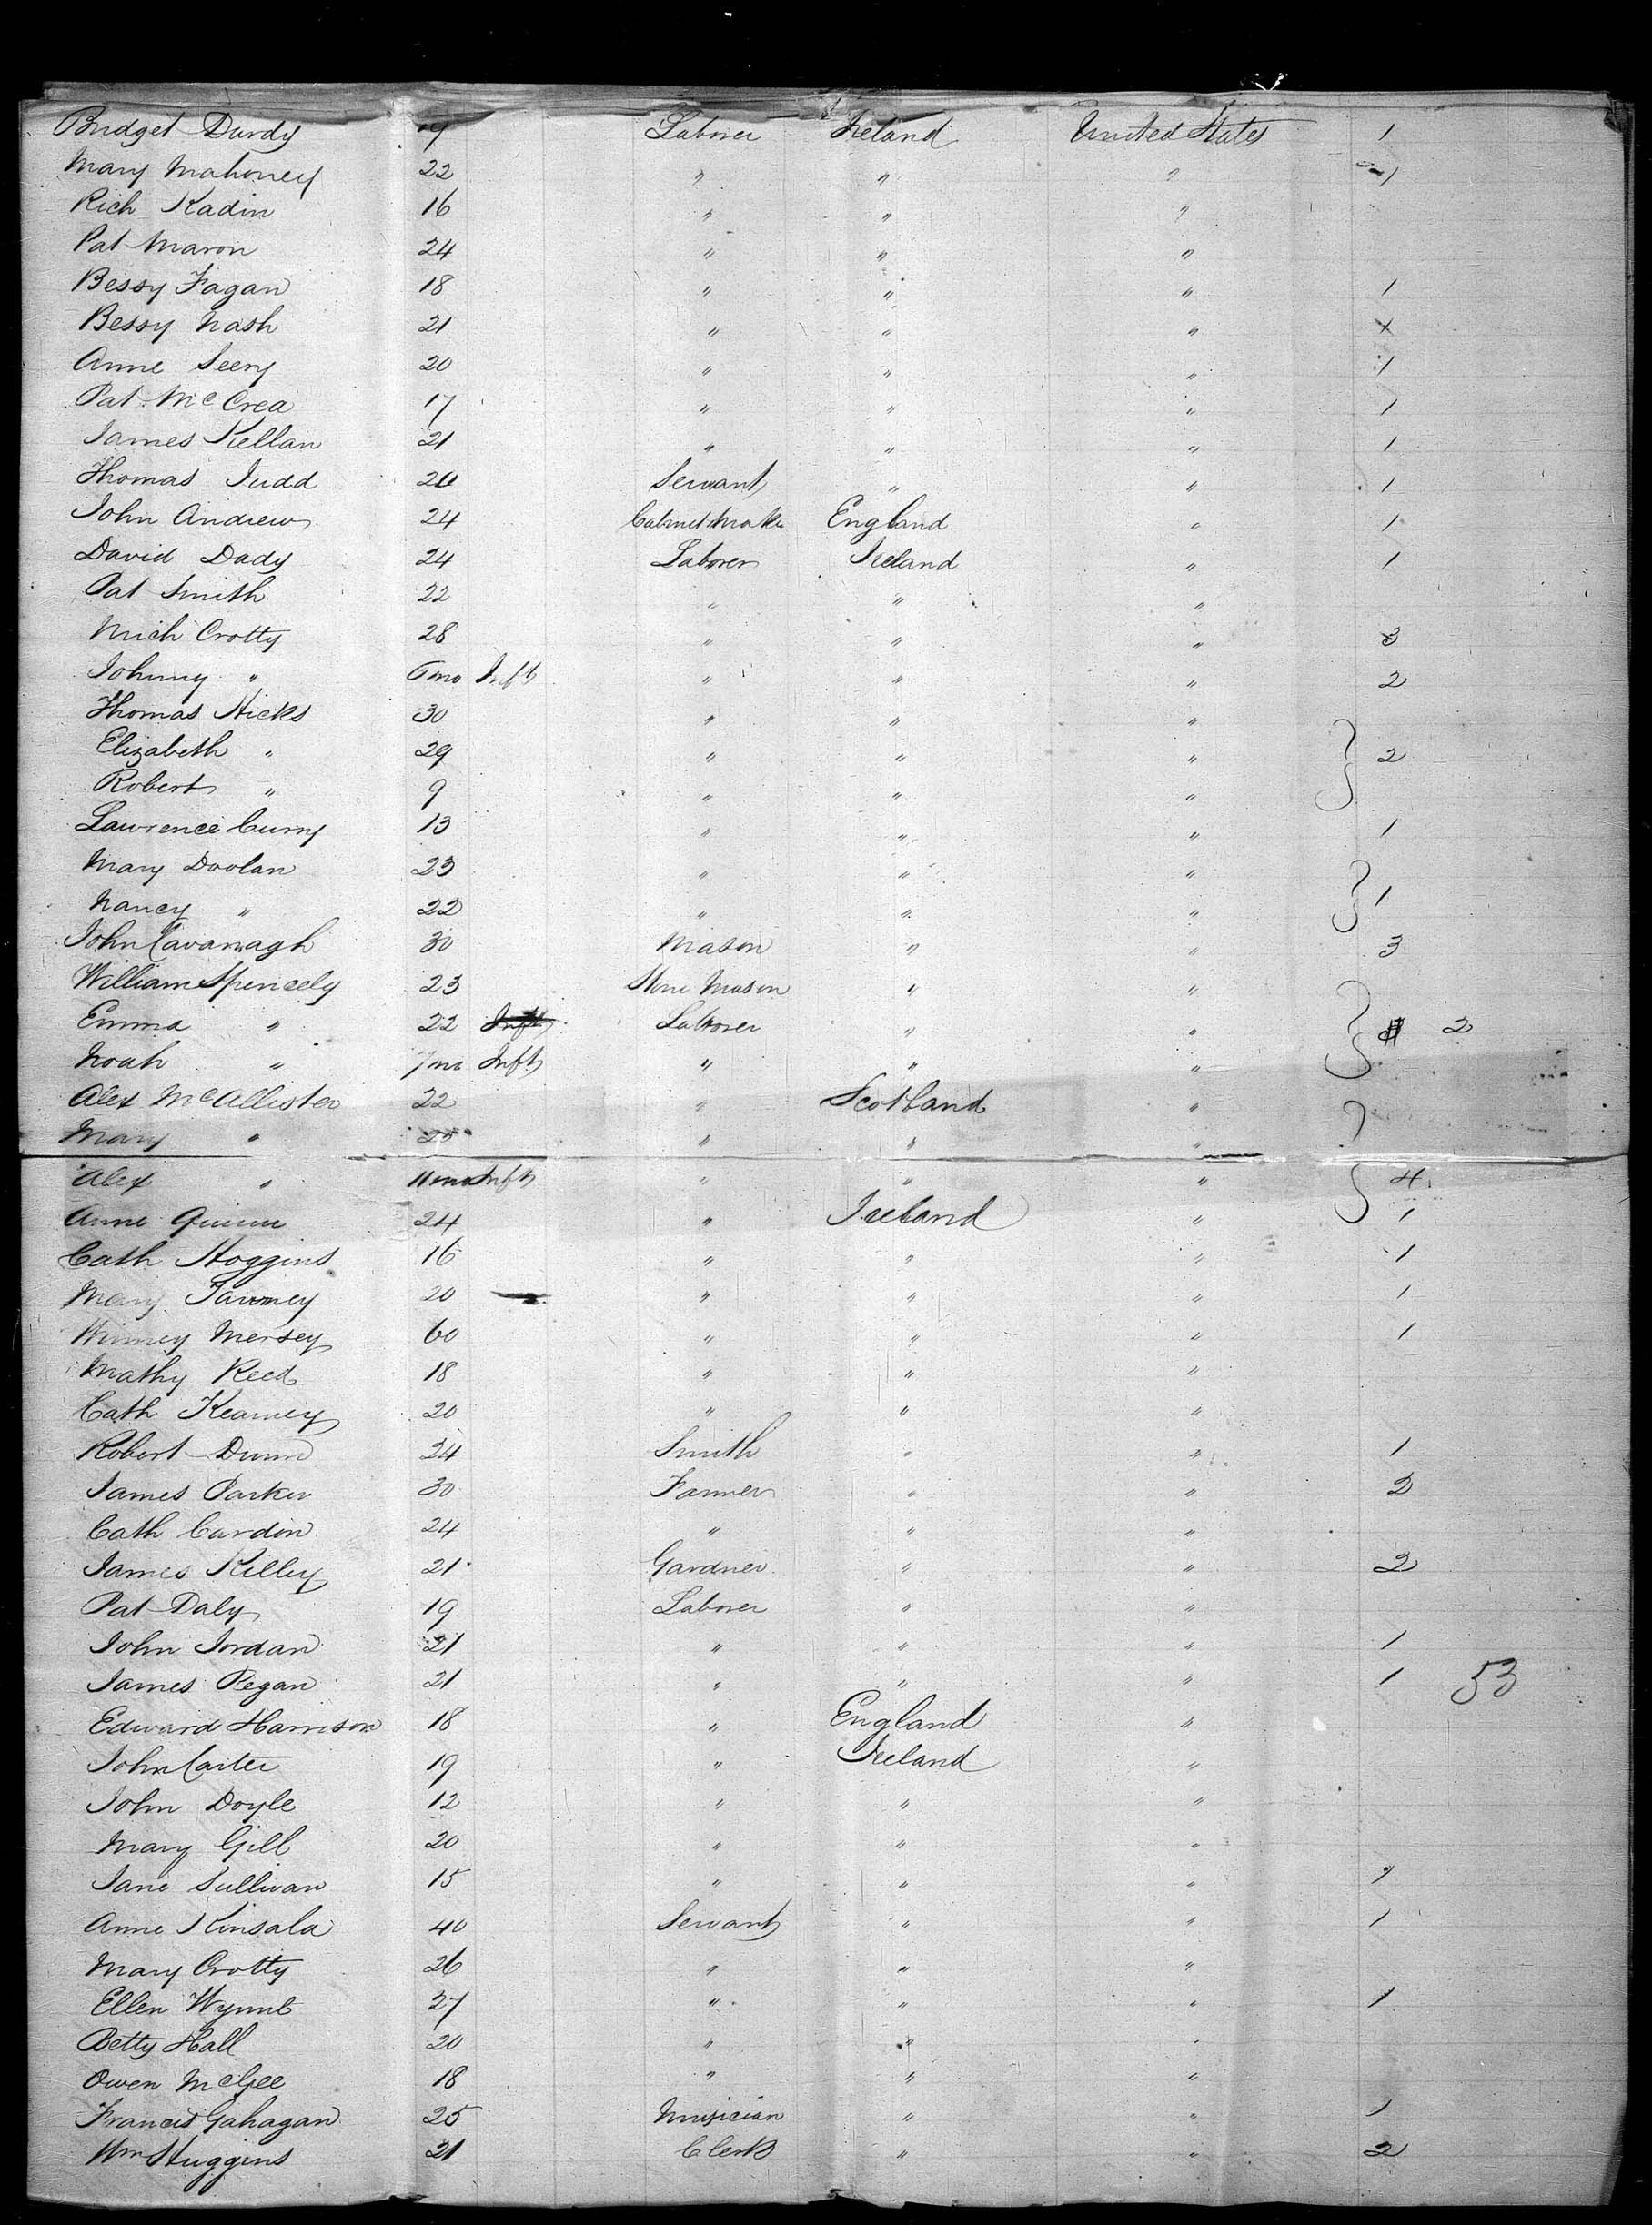 Bridget Durdy 19 Laborer Ireland United States 1
Mary Mahoney 22 " " " 1
Rich Kadin 16 " " "
Pat Maron 24 " " "
Bessy Fagan 18 " " " 1
Bessy Nash 21 " " " 1
Anne Seery 20 " " " 1
Pat McCrea 17 " " " 1
James Kellan 21 " " " 1
Thomas Judd 20 Servant " " 1
John Andrew 24 Cabinet Maker England " 1
David Dady 24 Laborer Ireland " 1
Pat Smith 22 " " "
Mich Crotty 28 " " " 3
Johnny " 6 mo Inft " " " 2
Thomas Hicks 30 " " "
Elizabeth " 29 " " " 2
Robert " 9 " " "
Lawrence Curry 13 " " " 1
Mary Doolan 23 " " "
Nancy " 22 " " " 1
John Cavanagh 30 Mason " " 3
William Spencely 23 Stone Mason " "
Emma " 22 Laborer " " 2
Noah " 7 mo Inft " " "
Alex McAllister 22 " Scotland "
Mary " 25 " " "
Alex " 11 mo Inft " " " 4
Anne Quinn 24 " Ireland " 1
Cath Hoggins 16 " " " 1
Mary Tawney 20 " " " 1
Winney Mersey 60 " " " 1
Mathy Reed 18 " " "
Cath Kearney 20 " " "
Robert Dunn 24 Smith " " 1
James Parker 30 Farmer " " 2
Cath Cardin 24 " " "
James Kelley 21 Gardner " " 2
Pat Daly 19 Laborer " "
John Jordan 21 " " " 1
James Regan 21 " " " 1 53
Edward Harrison 18 " England "
John Carter 19 " Ireland "
John Doyle 12 " " "
Mary Gill 20 " " "
Jane Sullivan 15 " " " 1
Anne Kinsala 40 Servant " " 1
Mary Crotty 26 " " "
Ellen Wynnt 27 " " " 1
Betty Hall 20 " " "
Owen McGee 18 " " "
Francis Gahagan 25 Musician " " 1
Wm Huggins 21 Clerk " " 2